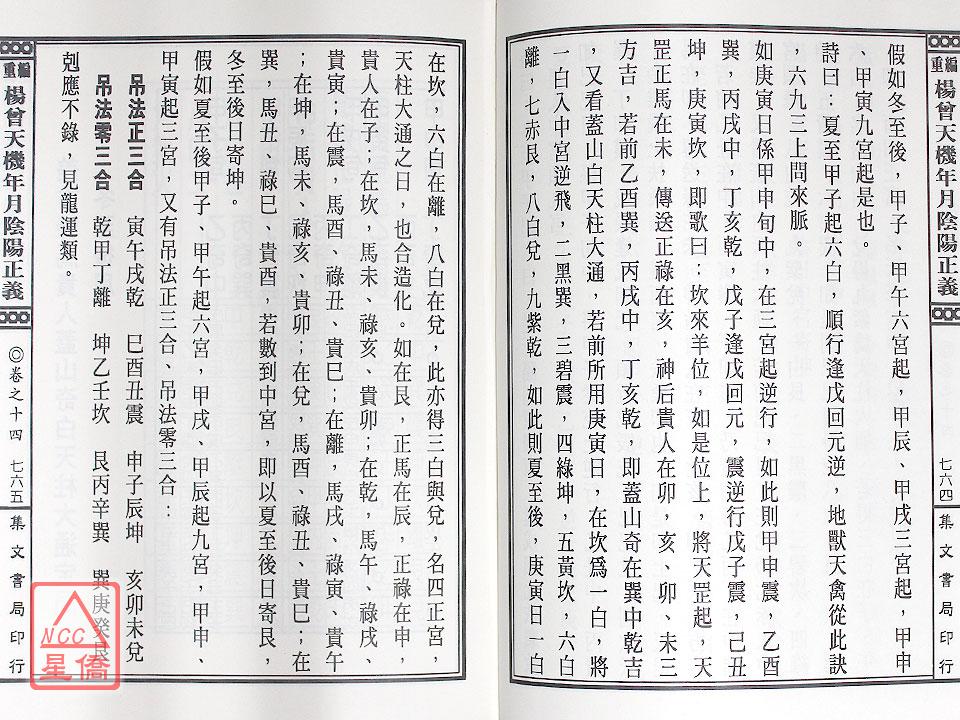 重編 楊曾天機年月陰陽正義 七六四 集文書局印行
假如冬至後，甲子、甲午六宮起，甲辰、甲戌三宮起，甲申
、甲寅九宮起是也。
詩曰：夏至甲子起六白，順行逢戊回元逆，地獸天禽從此訣
，六九三上問來脈。
如庚寅日係甲申旬中，在三宮起逆行，如此則甲申震，乙酉
巽，丙戌中，丁亥乾，戊子逢戊回元，震逆行戊子震，己丑
坤，庚寅坎，即歌曰：坎來羊位，如是位上，將天罡起，天
罡正馬在未，傳送正祿在亥，神后貴人在卯，亥、卯、未三
方吉，若前乙酉巽，丙戌中，丁亥乾，即蓋山奇在巽中乾吉
，又看蓋山白天柱大通，若前所用庚寅日，在坎為一白，將
一白入中宮逆飛，二黑巽，三碧震，四綠坤，五黃坎，六白
離，七赤艮，八白兌，九紫乾，如此則夏至後，庚寅日一白
在坎，六白在離，八白在兌，此亦得三白與兌，名四正宮，
天柱大通之日，也合造化。如在艮，正馬在辰，正祿在申，
貴人在子；在坎，馬未、祿亥、貴卯；在乾，馬午、祿戌、
貴寅；在震，馬酉、祿丑、貴巳；在離，馬戌、祿寅、貴午
；在坤，馬未、祿亥、貴卯；在兌，馬酉、祿丑、貴巳；在
巽，馬丑、祿巳、貴酉，若數到中宮，即以夏至後日寄艮，
冬至後日寄坤。
假如夏至後甲子、甲午起六宮，甲戌、甲辰起九宮，甲申、
甲寅起三宮，又有吊法正三合、吊法零三合：
吊法正三合 寅午戌乾 巳酉丑震 申子辰坤 亥卯未兌
吊法零三合 乾甲丁離 坤乙壬坎 艮丙辛巽 巽庚癸艮
剋應不錄，見龍運類。
重編 楊曾天機年月陰陽正義 ◎卷之十四 七六五 集文書局印行
NCC
星僑